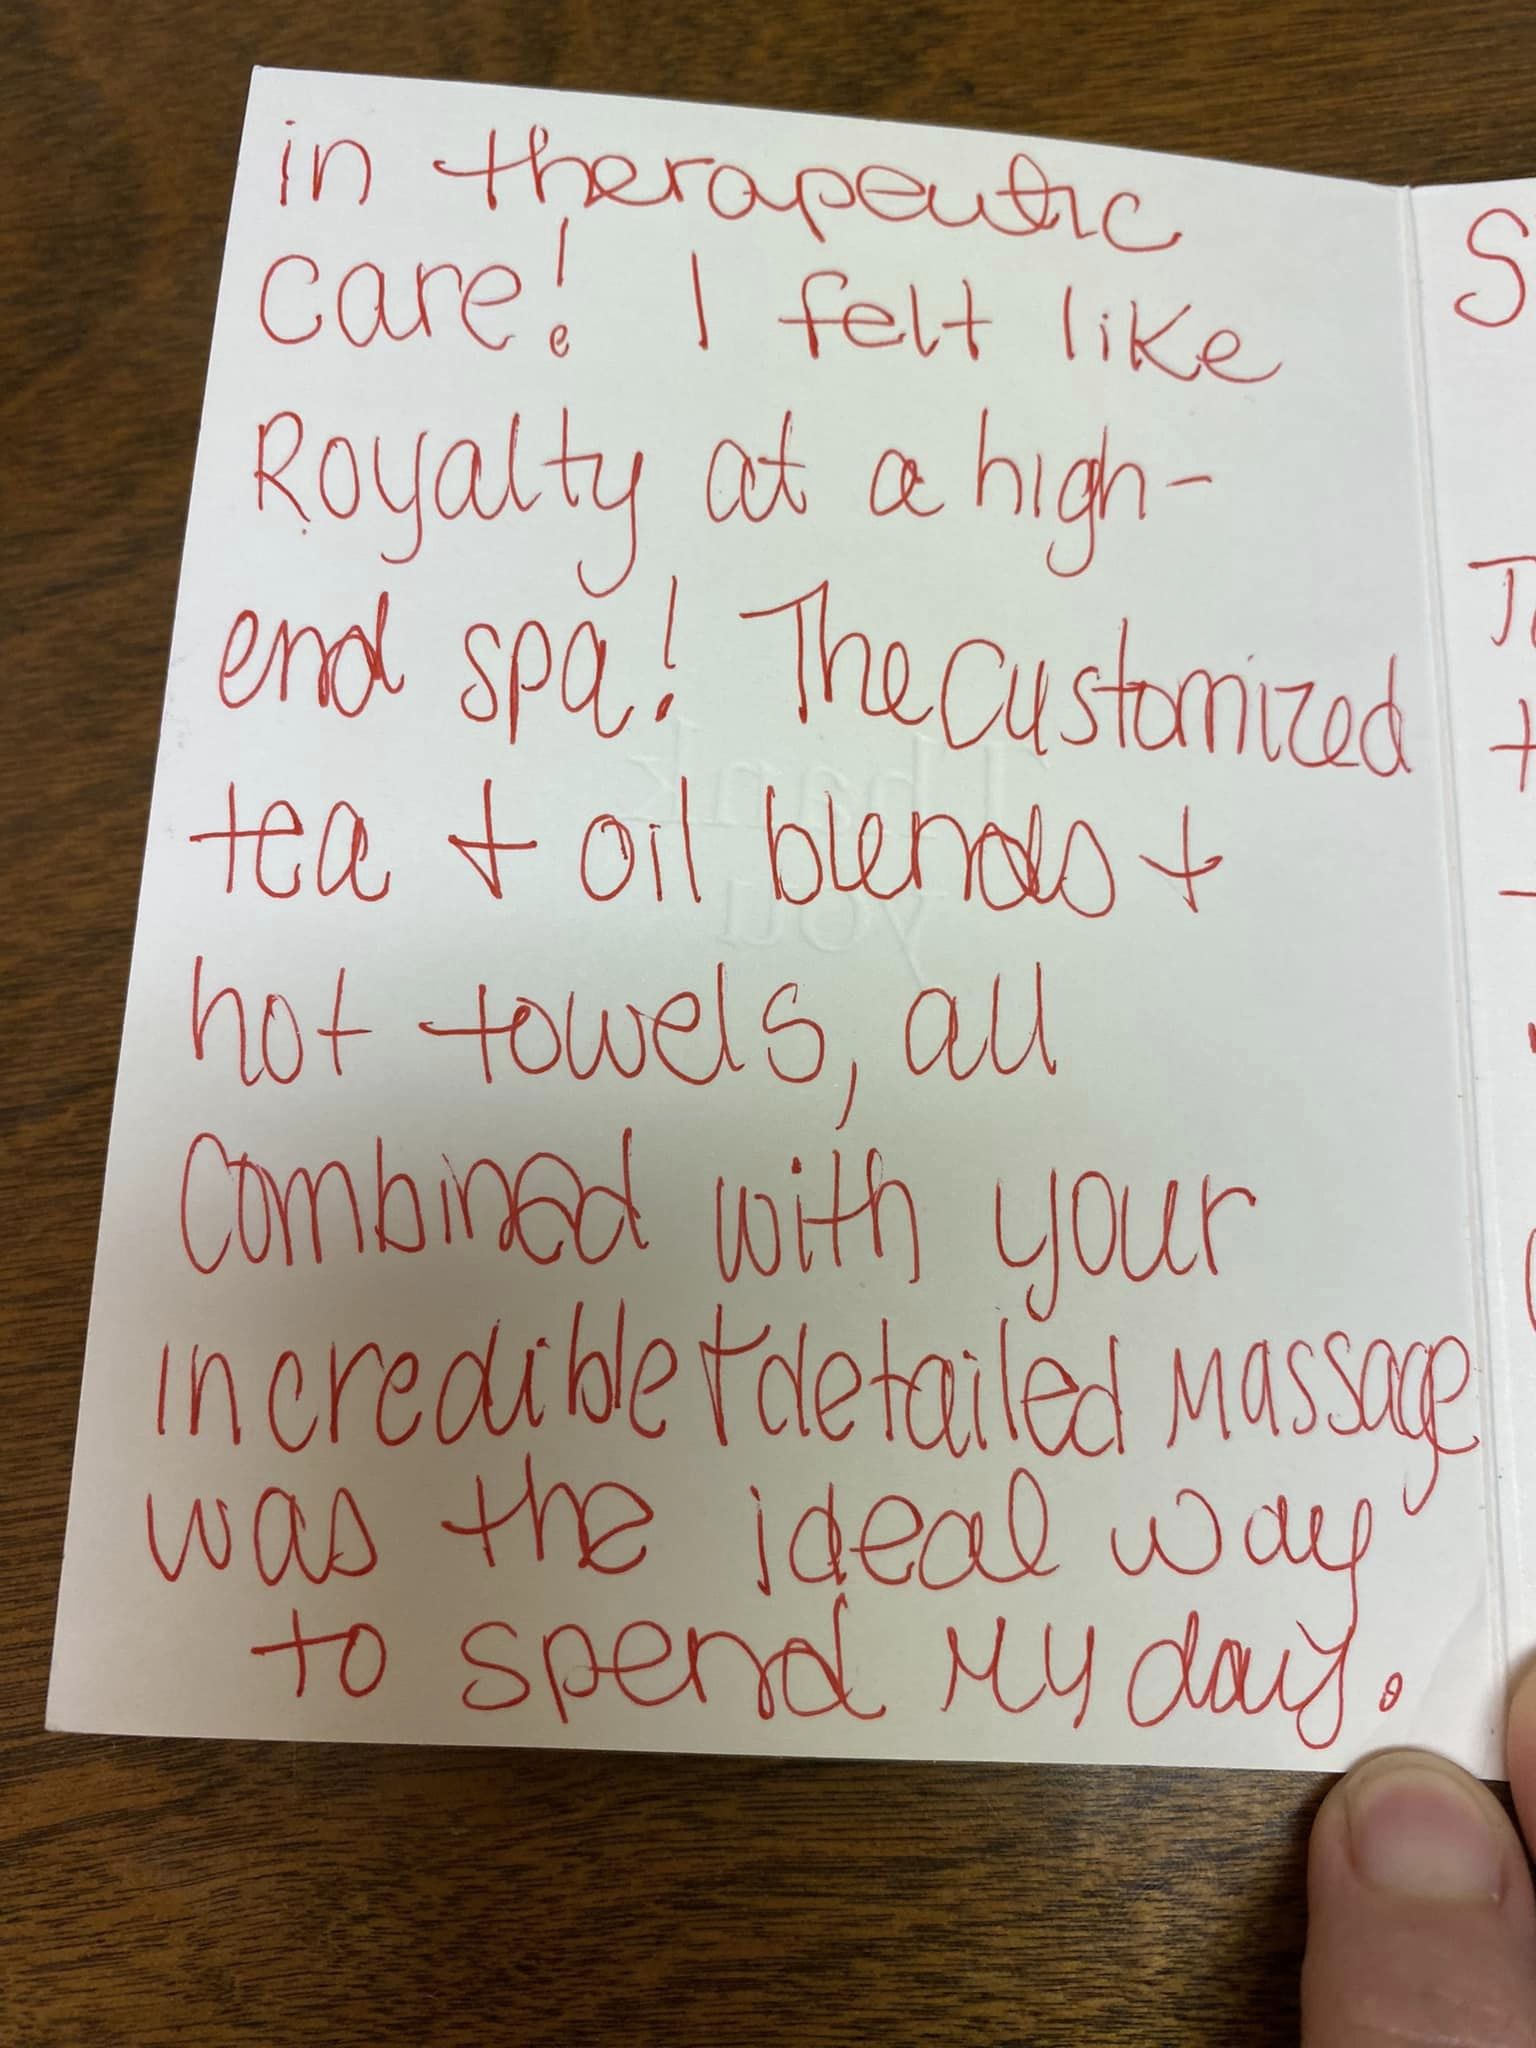 in therapeutic
care! I felt like
Royalty at a high-
end spa! The customized
tea + oil blends +
hot towels, all
combined with your
incredible + detailed massage
was the ideal way
to spend my day.
Thank
you